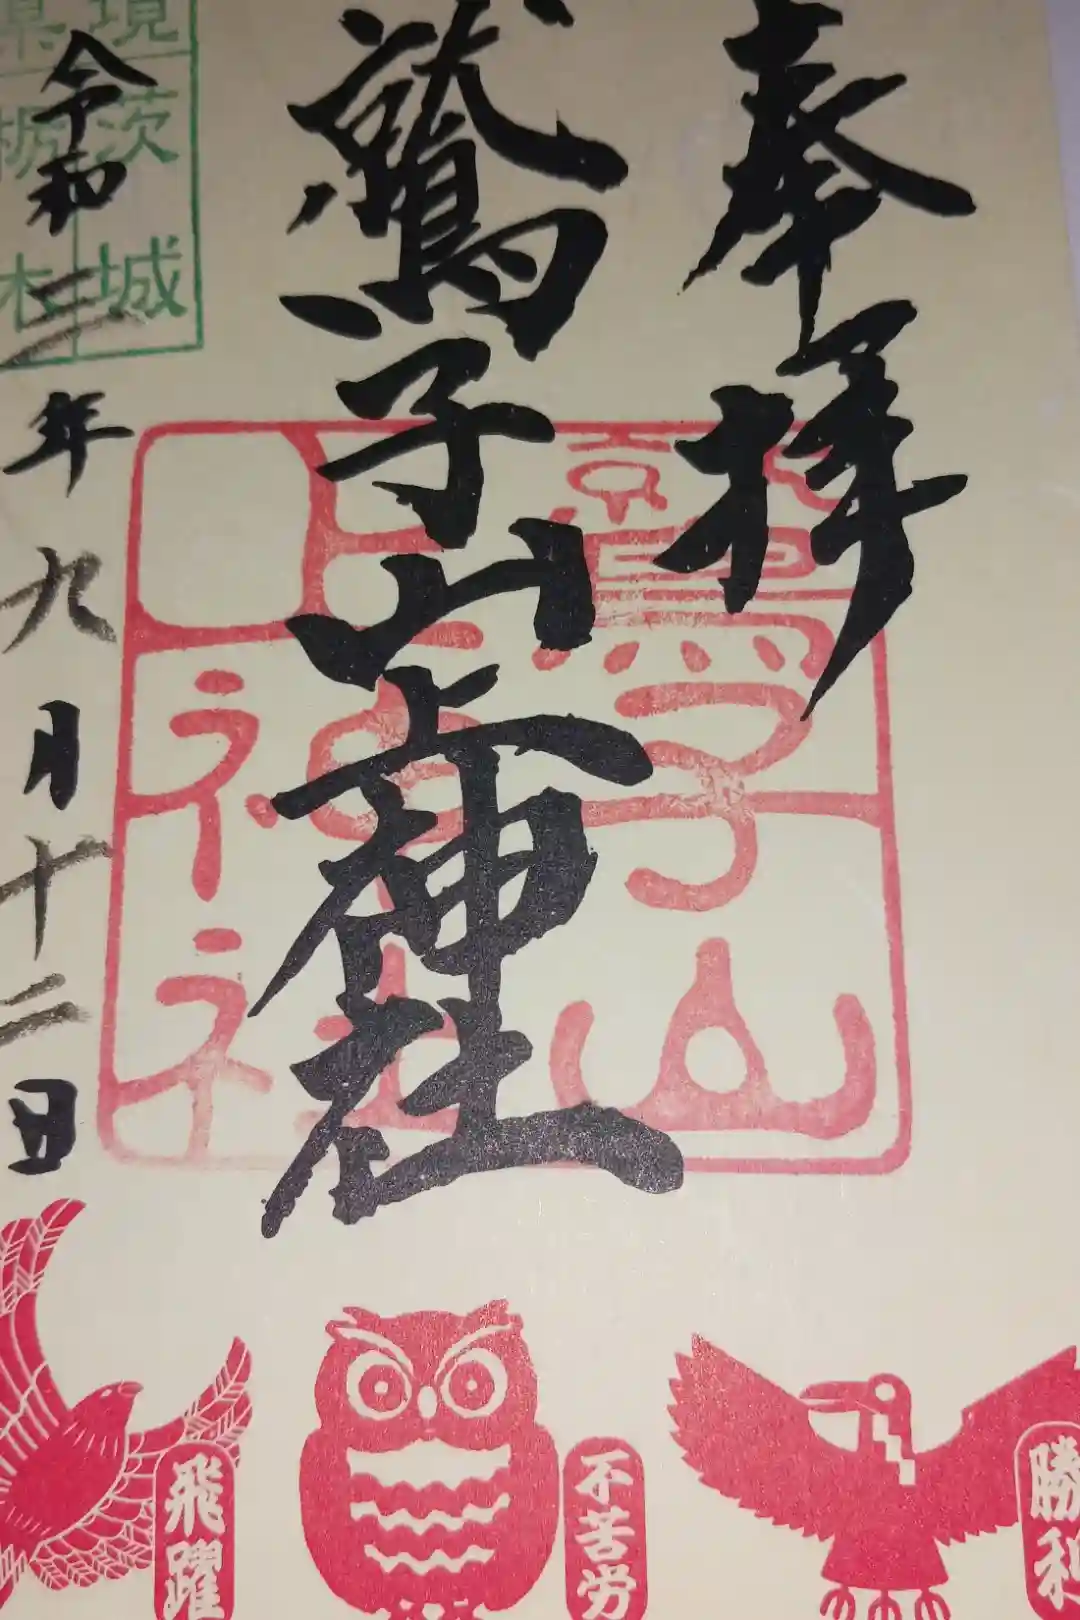 奉拝
鷲子山上神社
令和三年九月十二日
境
茨城
県
栃木
鷲子山
上神社
勝利
不苦労
飛躍